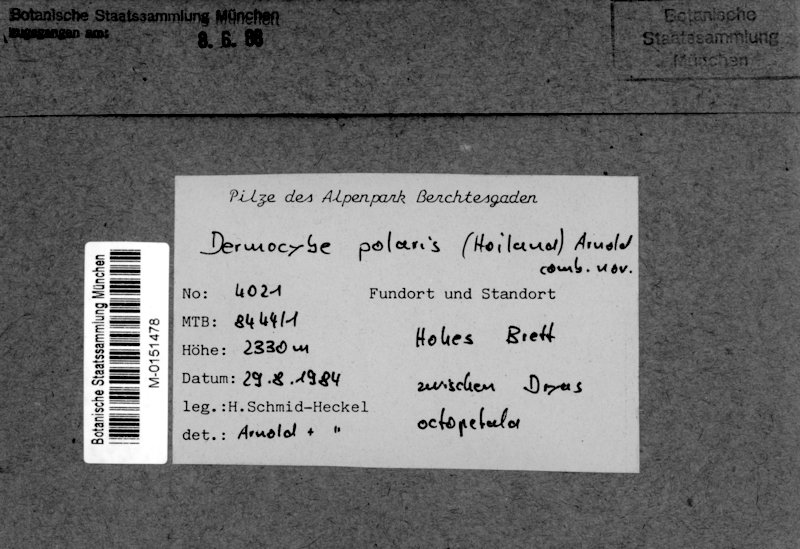 Botanische Staatssammlung München
zugegangen am:
8. 6. 88
Botanische
Staatssammlung
München
Pilze des Alpenpark Berchtesgaden
Dermocybe polaris (Hoiland) Arnold
comb. nov.
No: 4021
Fundort und Standort
MTB: 8444/1
Hohes Brett
Höhe: 2330 m
Datum: 29.8.1984
zwischen Dryas
leg.: H.Schmid-Heckel
octopetala
det.: Arnold + "
Botanische Staatssammlung München
M-0151478